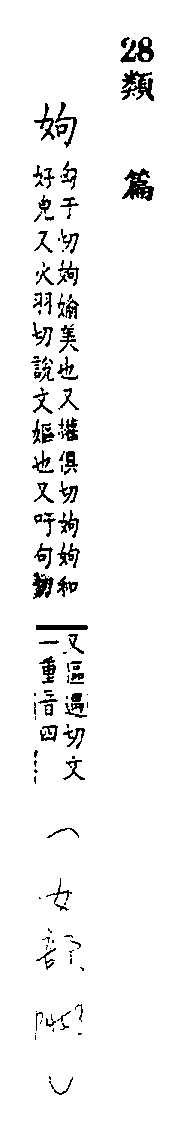 28類篇
姁
匈于切姁婾美也又權俱切姁姁和
好皃又火羽切說文嫗也又吁句切
又區遇切文
一重音四
(女部)